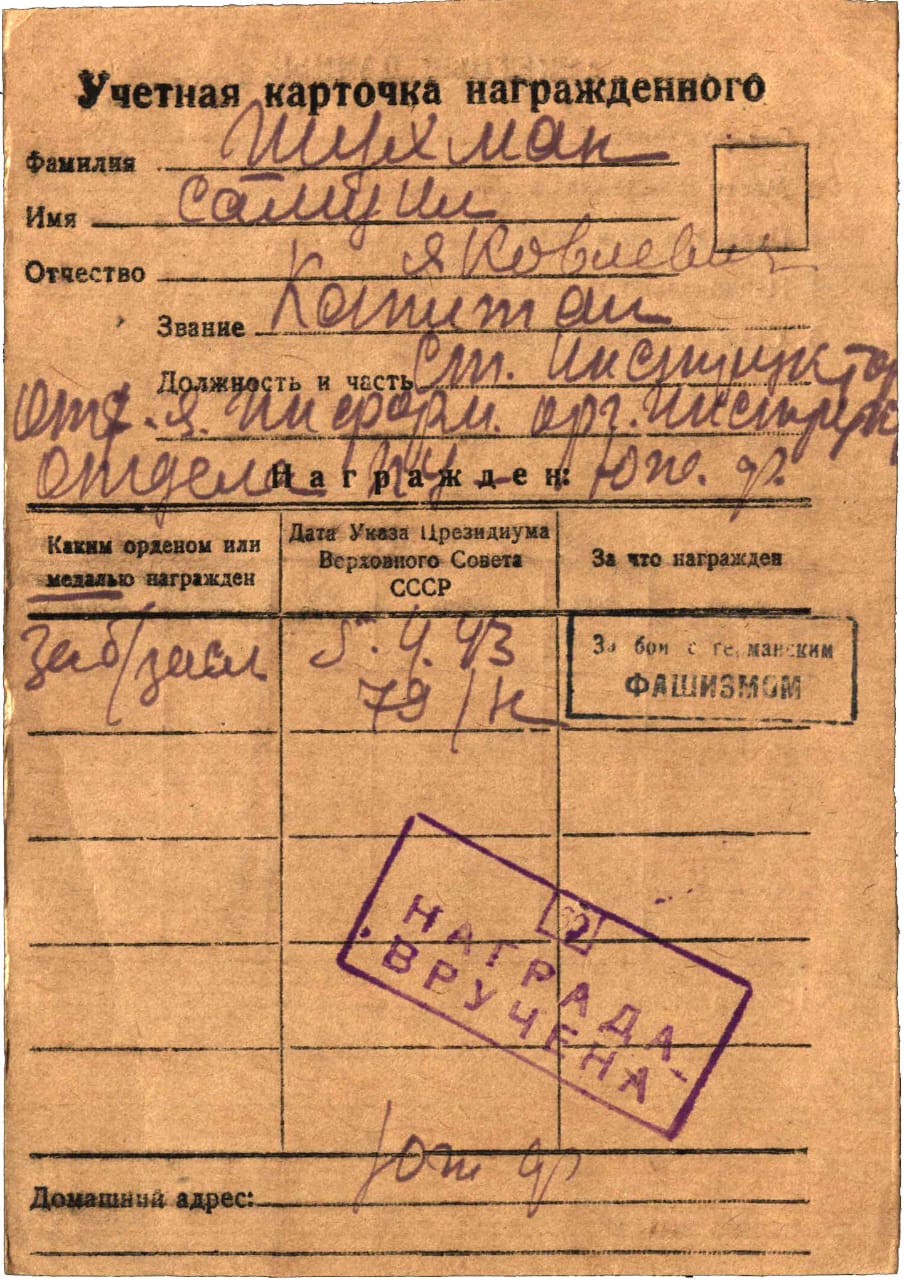 Учетная карточка награжденного
Фамилия Шухман
Имя Самуил
Отчество Яковлевич
Звание Капитан
Должность и часть Ст. Инструктор
отд-я. Информ. орг. Инструк
отдела ПУ - Юж. ф.
Награжден:
Каким орденом или медалью награжден
Дата Указа Президиума Верховного Совета СССР
За что награжден
За б/засл
5. 4. 43
79/н
За бои с германским
ФАШИЗМОМ
НАГРАДА
ВРУЧЕНА
Юж ф
Домашний адрес: